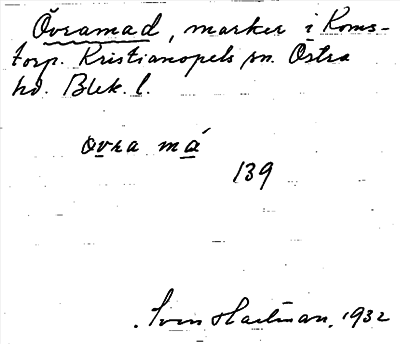 Övramad, marker i Koms-
torp. Kristianopels sn. Östra
hd. Blek. l.
ovra má
139
Sven Hartman, 1932